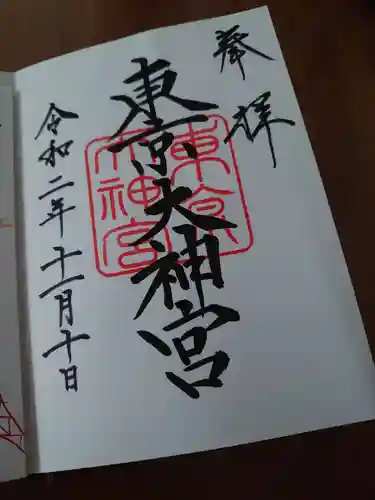 奉拝
東京大神宮
令和二年十一月十日
東京
大神宮